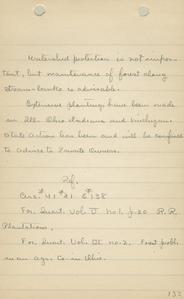 Watershed protection is not impor-
tant, but maintenance of forest along
stream-banks is advisable.
Extensive plantings have been made
in Ill. Ohio Indiana and Michigan.
State action has been and will be confined
to advice to Private Owners.
Ref.
Circ. #41 #81 & #138
For. Quart. Vol. V no. 1. p. 20 R. R.
Plantations.
For. Quart. Vol. III no. 2. Forest prob.
in an agr. Co. in Ohio.